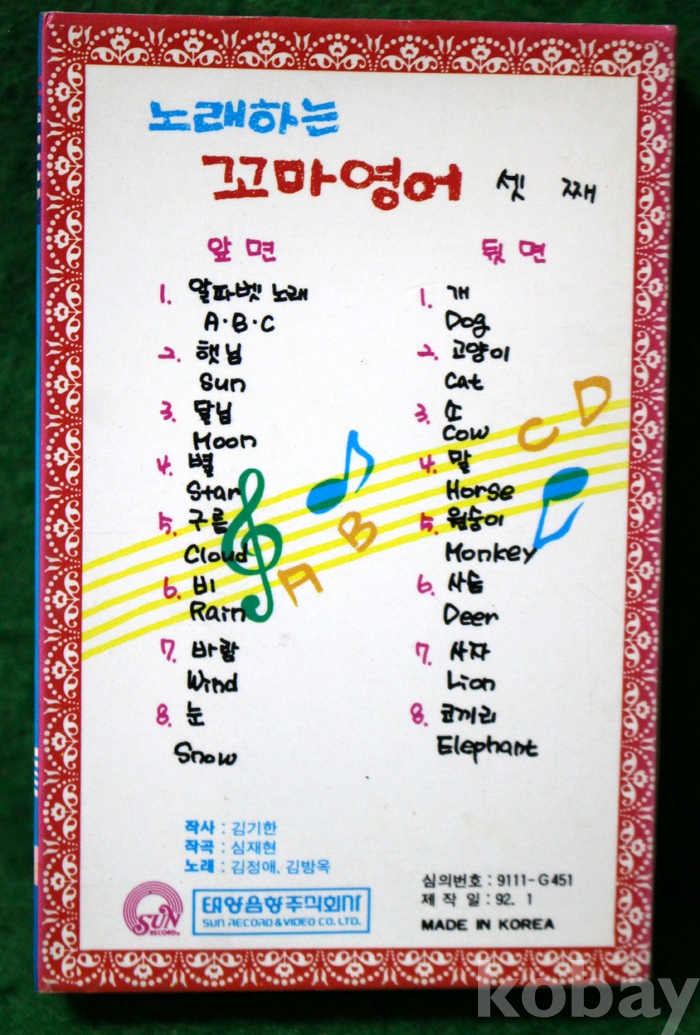 노래하는
꼬마영어 셋 째
앞 면
1. 알파벳 노래
A·B·C
2. 햇님
Sun
3. 달님
Moon
4. 별
Star
5. 구름
Cloud
6. 비
Rain
7. 바람
Wind
8. 눈
Snow
뒷 면
1. 개
Dog
2. 고양이
Cat
3. 소
Cow
4. 말
Horse
5. 원숭이
Monkey
6. 사슴
Deer
7. 사자
Lion
8. 코끼리
Elephant
A B C D
작사 : 김기한
작곡 : 심재현
노래 : 김정애, 김방옥
SUN
RECORD
태양음향주식회사
SUN RECORD & VIDEO CO. LTD.
심의번호 : 9111-G451
제 작 일 : 92. 1
MADE IN KOREA
kobay